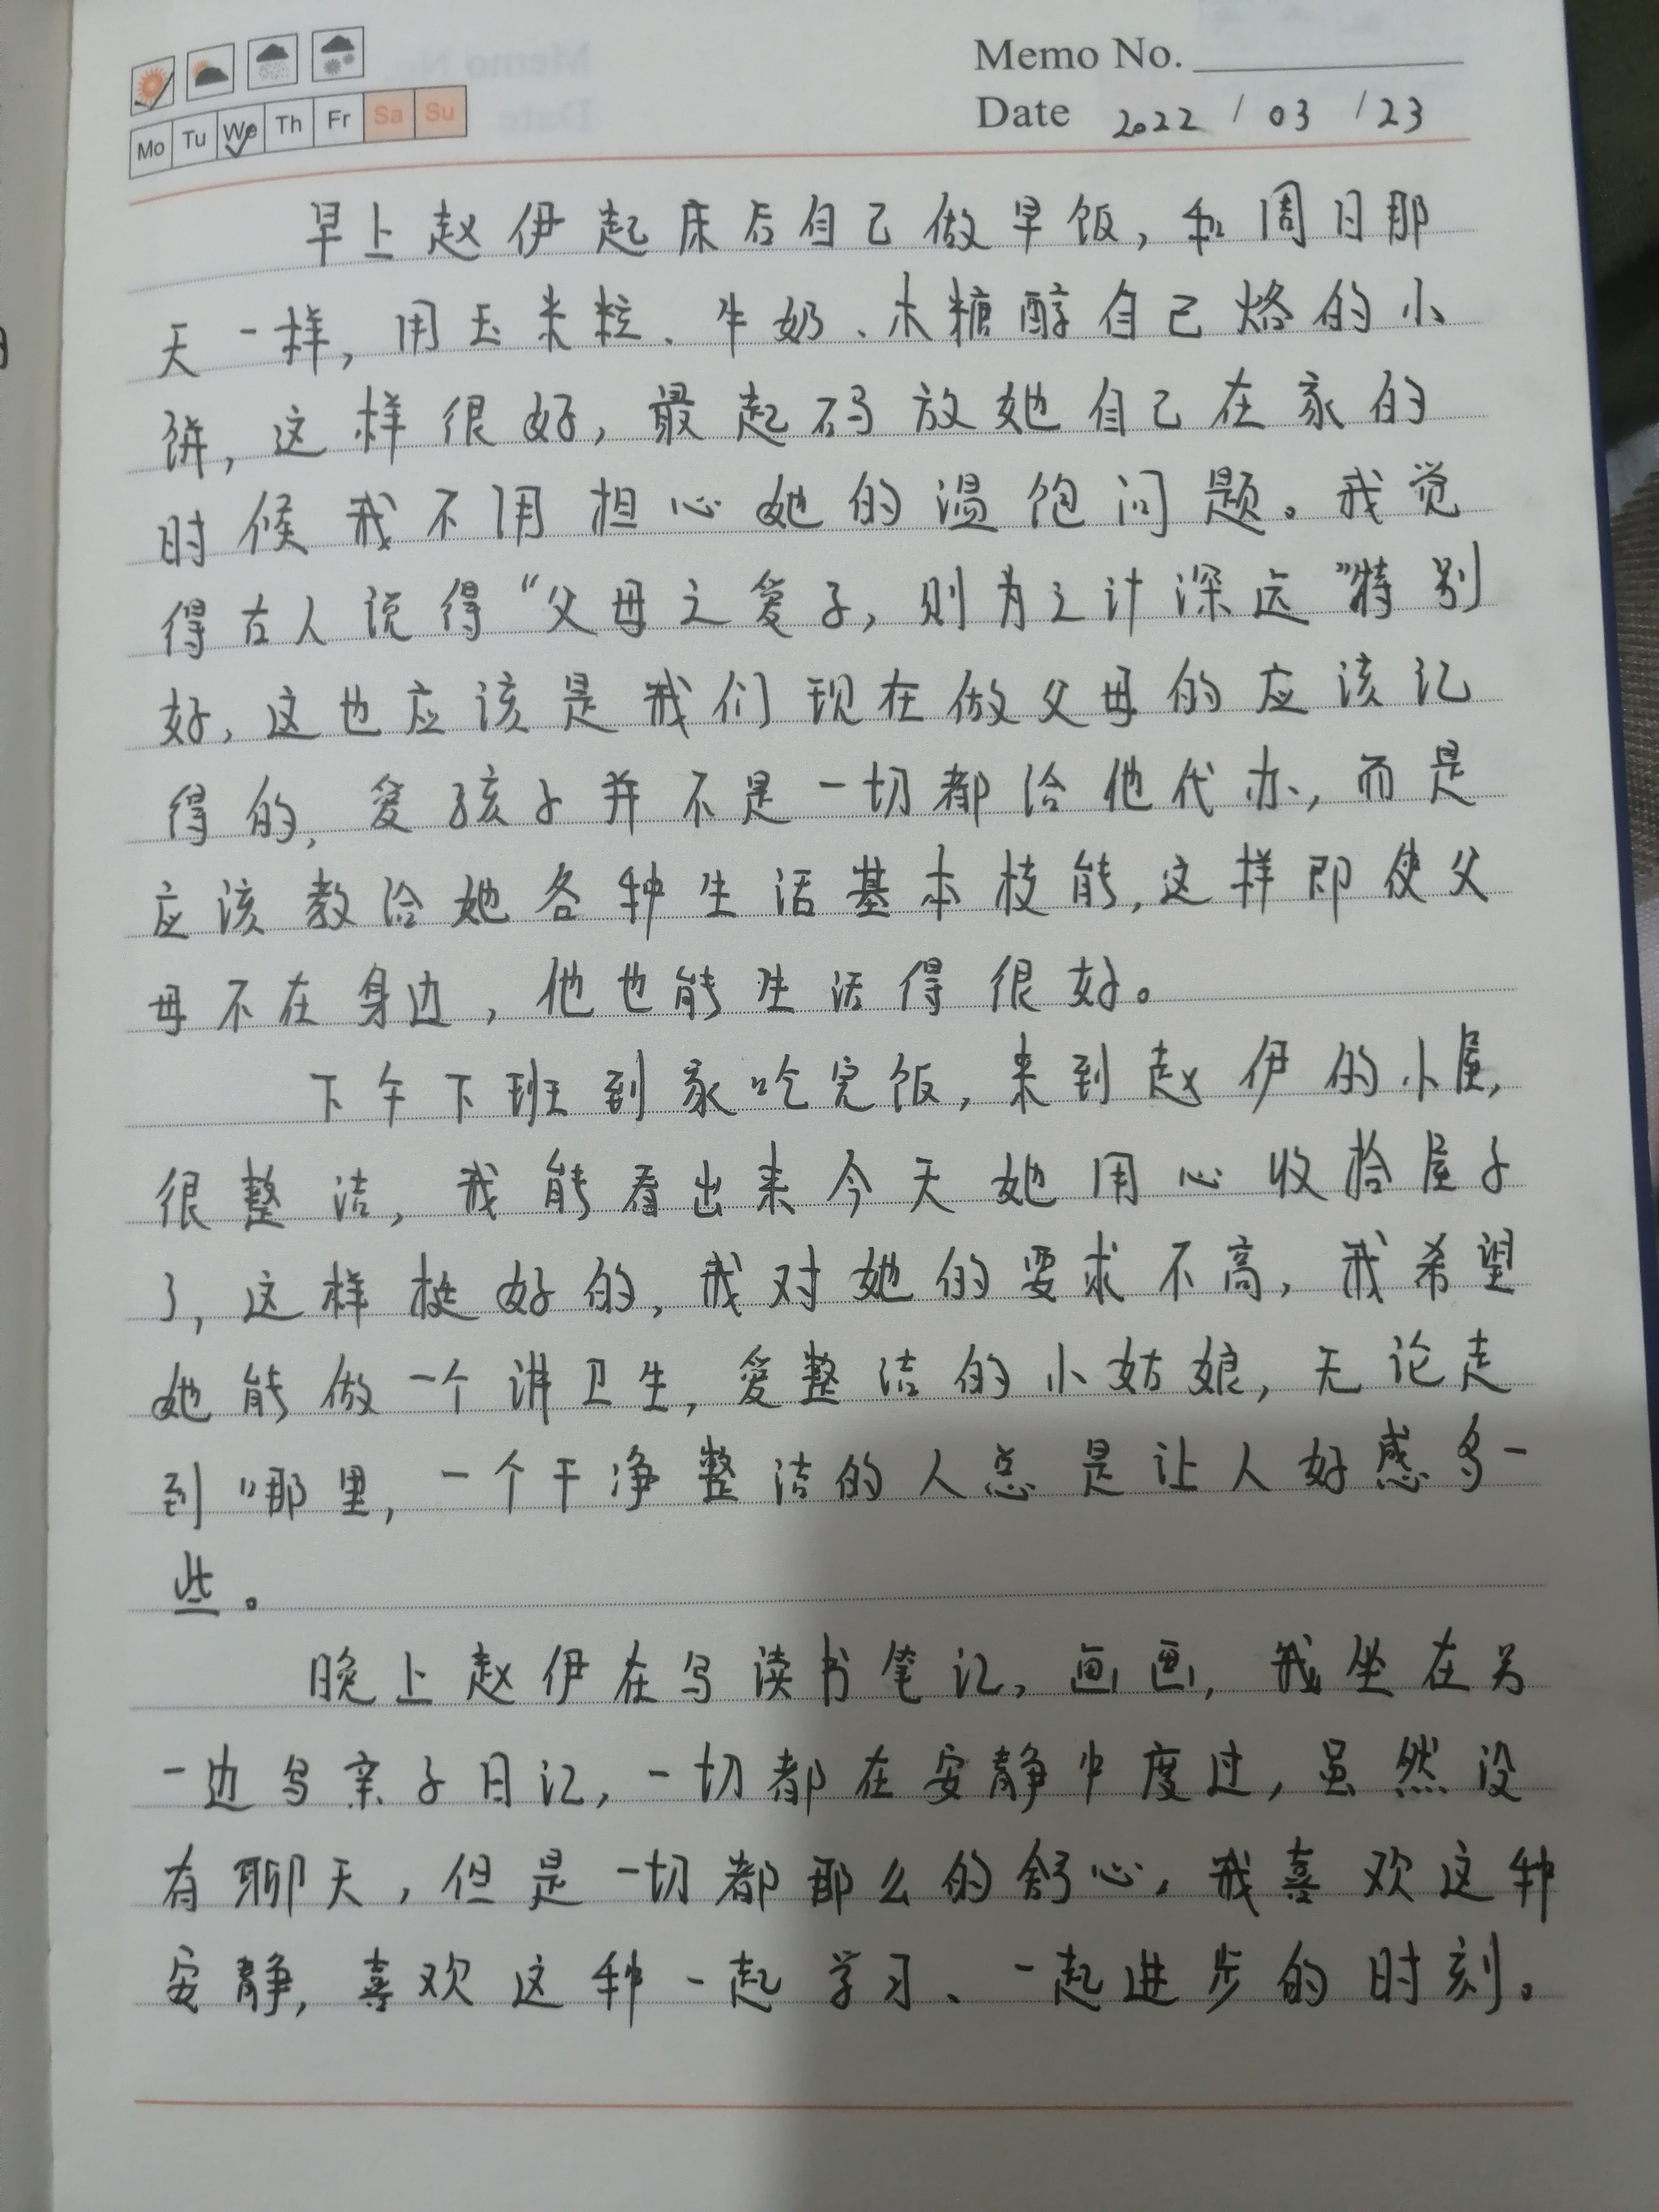 Memo No.
Mo Tu We Th Fr Sa Su
Date 2022 / 03 / 23
早上赵伊起床后自己做早饭,和周日那
天一样,用玉米粒、牛奶、木糖醇自己烙的小
饼,这样很好,最起码放她自己在家的
时候我不用担心她的温饱问题。我觉
得古人说得“父母之爱子,则为之计深远”特别
好,这也应该是我们现在做父母的应该记
得的,爱孩子并不是一切都给他代办,而是
应该教给她各种生活基本技能,这样即使父
母不在身边,他也能生活得很好。
下午下班到家吃完饭,来到赵伊的小屋,
很整洁,我能看出来今天她用心收拾屋子
了,这样挺好的,我对她的要求不高,我希望
她能做一个讲卫生,爱整洁的小姑娘,无论走
到哪里,一个干净整洁的人总是让人好感多一
些。
晚上赵伊在写读书笔记,画画,我坐在另
一边写亲子日记,一切都在安静中度过,虽然没
有聊天,但是一切都那么的舒心,我喜欢这种
安静,喜欢这种一起学习、一起进步的时刻。